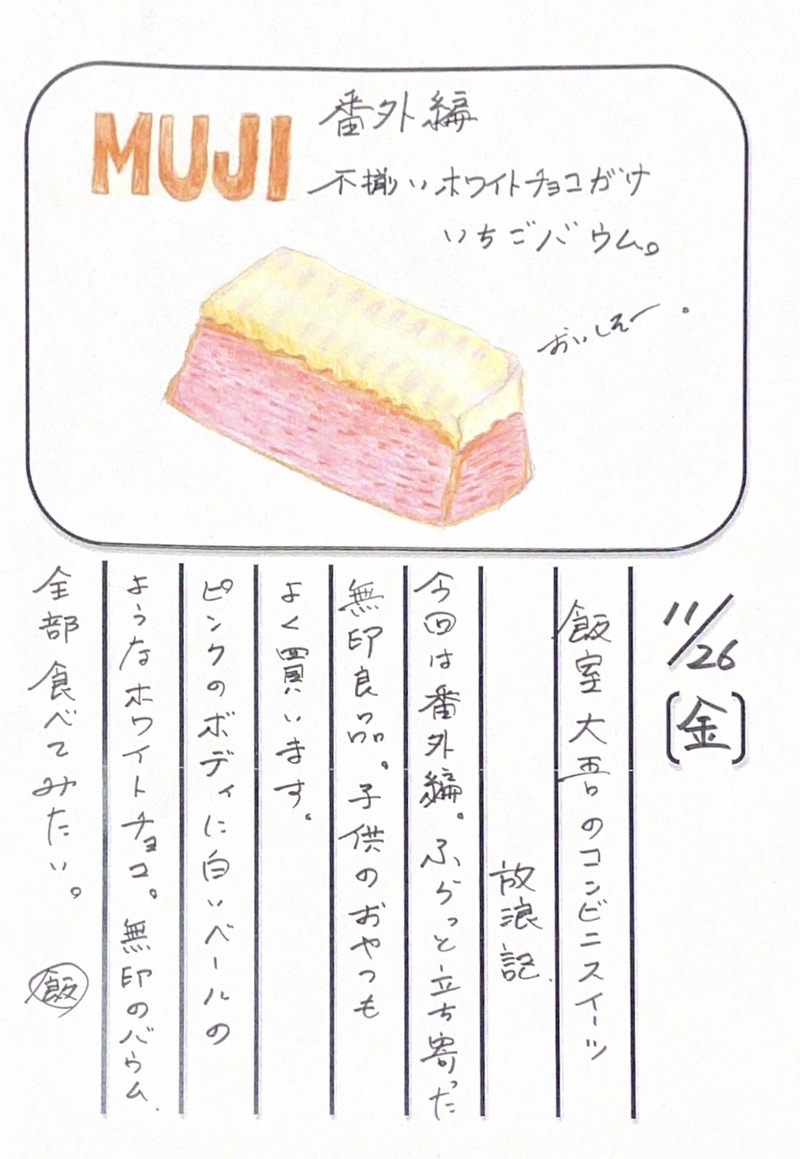 MUJI 番外編
不揃いホワイトチョコがけ
いちごバウム。
おいしそー。
11/26
[金]
飯室大吾のコンビニスイーツ
放浪記.
今回は番外編。ふらっと立ち寄った
無印良品。子供のおやつも
よく買います。
ピンクのボディに白いベールの
ようなホワイトチョコ。無印のバウム.
全部食べてみたい。 飯